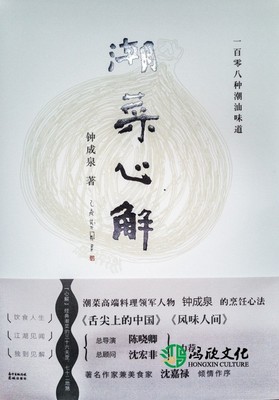 一百零八种潮汕味道
潮菜心解
钟成泉 著
饮食人生
江湖见闻
独到见解
潮菜高端料理领军人物 钟成泉 的烹饪心法
《舌尖上的中国》《风味人间》
总导演 陈晓卿
总顾问 沈宏非
著名作家兼美食家 沈嘉禄 倾情作序
鸿欣文化
HONGXIN CULTURE